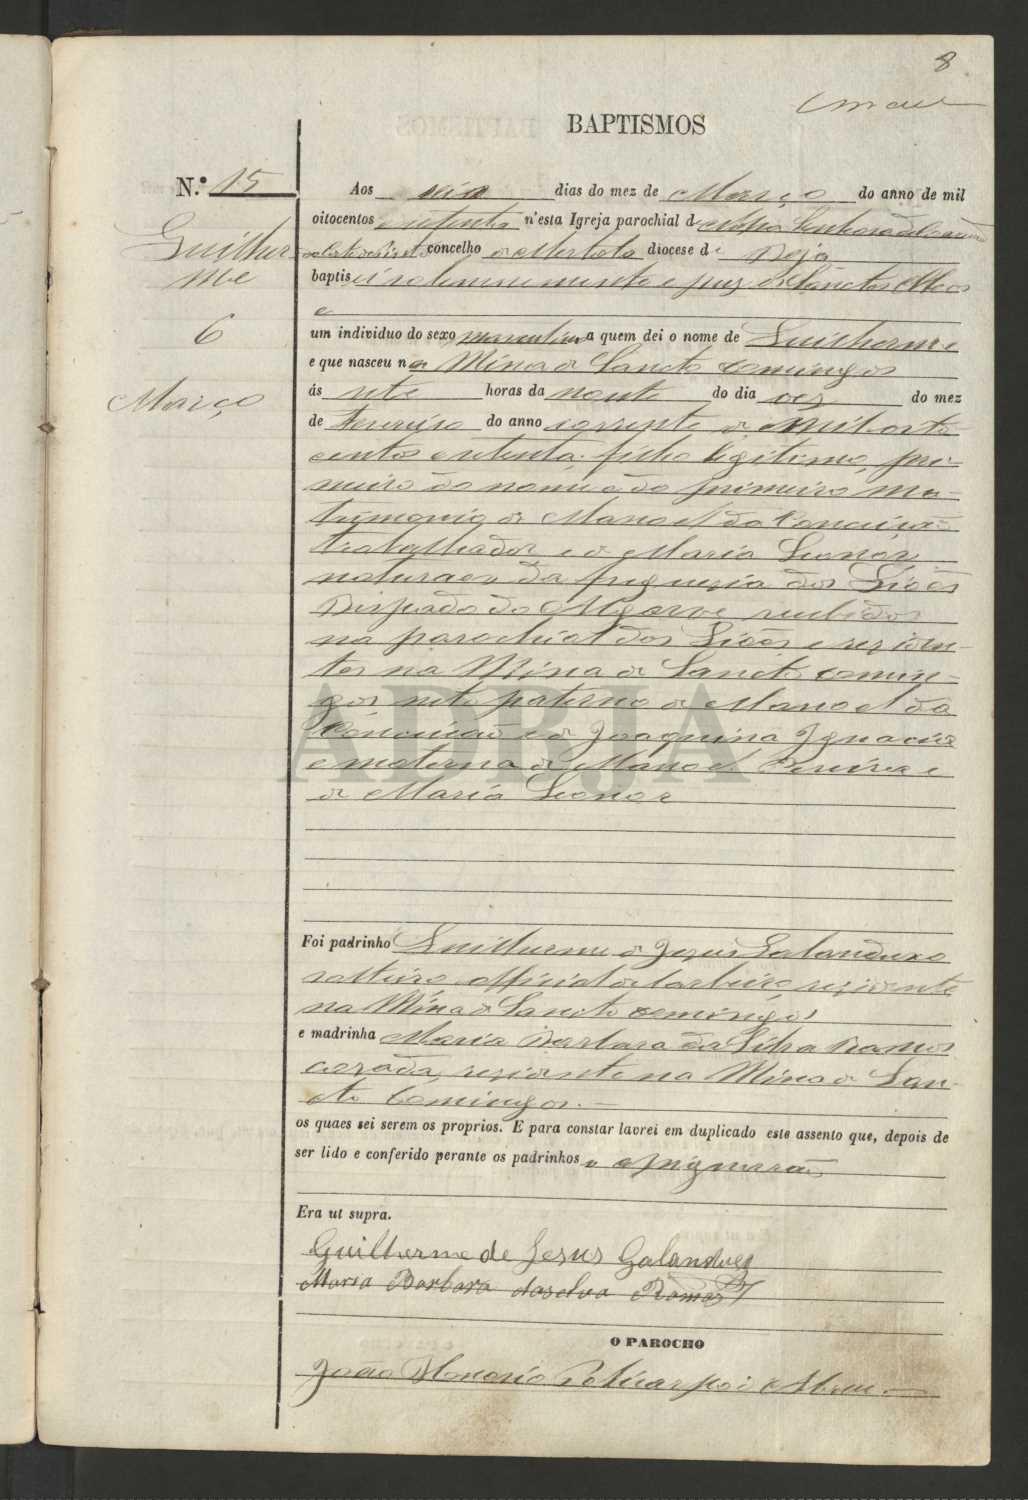 8
BAPTISMOS
N.º 15
Guilher
me
6
Março
Aos seis dias do mez de Março do anno de mil
oitocentos e setenta n'esta Igreja parochial de Nossa Senhora da
concelho de Mertola diocese de Beja
baptisei solemnemente e puz os Sanctos Oleos
a
um individuo do sexo masculino a quem dei o nome de Guilherme
e que nasceu na Mina de Sancto Domingos
ás sete horas da noute do dia dez do mez
de Fevereiro do anno corrente de mil oito
centos e setenta, filho legitimo, pri-
meiro do nome e do primeiro ma-
trimonio de Manoel da Conceição
trabalhador e de Maria Leonor
naturaes da freguezia dos Giões
Bispado do Algarve recebidos
na parochial dos Giões e reziden-
tes na Mina de Sancto Domin-
gos neto paterno de Manoel da
Conceição e de Joaquina Ignacia
e materno de Manoel Pereira e
de Maria Leonor
Foi padrinho Guilherme de Jezus Galanduxo
solteiro, official de barbeiro, rezidente
na Mina de Sancto Domingos
e madrinha Maria Barbara da Silva Ramos
cazada, rezidente na Mina de San-
cto Domingos.
os quaes sei serem os proprios. E para constar lavrei em duplicado este assento que, depois de
ser lido e conferido perante os padrinhos o assignarão
Era ut supra.
Guilherme de Jesus
Maria Barbara da selva Ramos
O PAROCHO
João
ADRJA